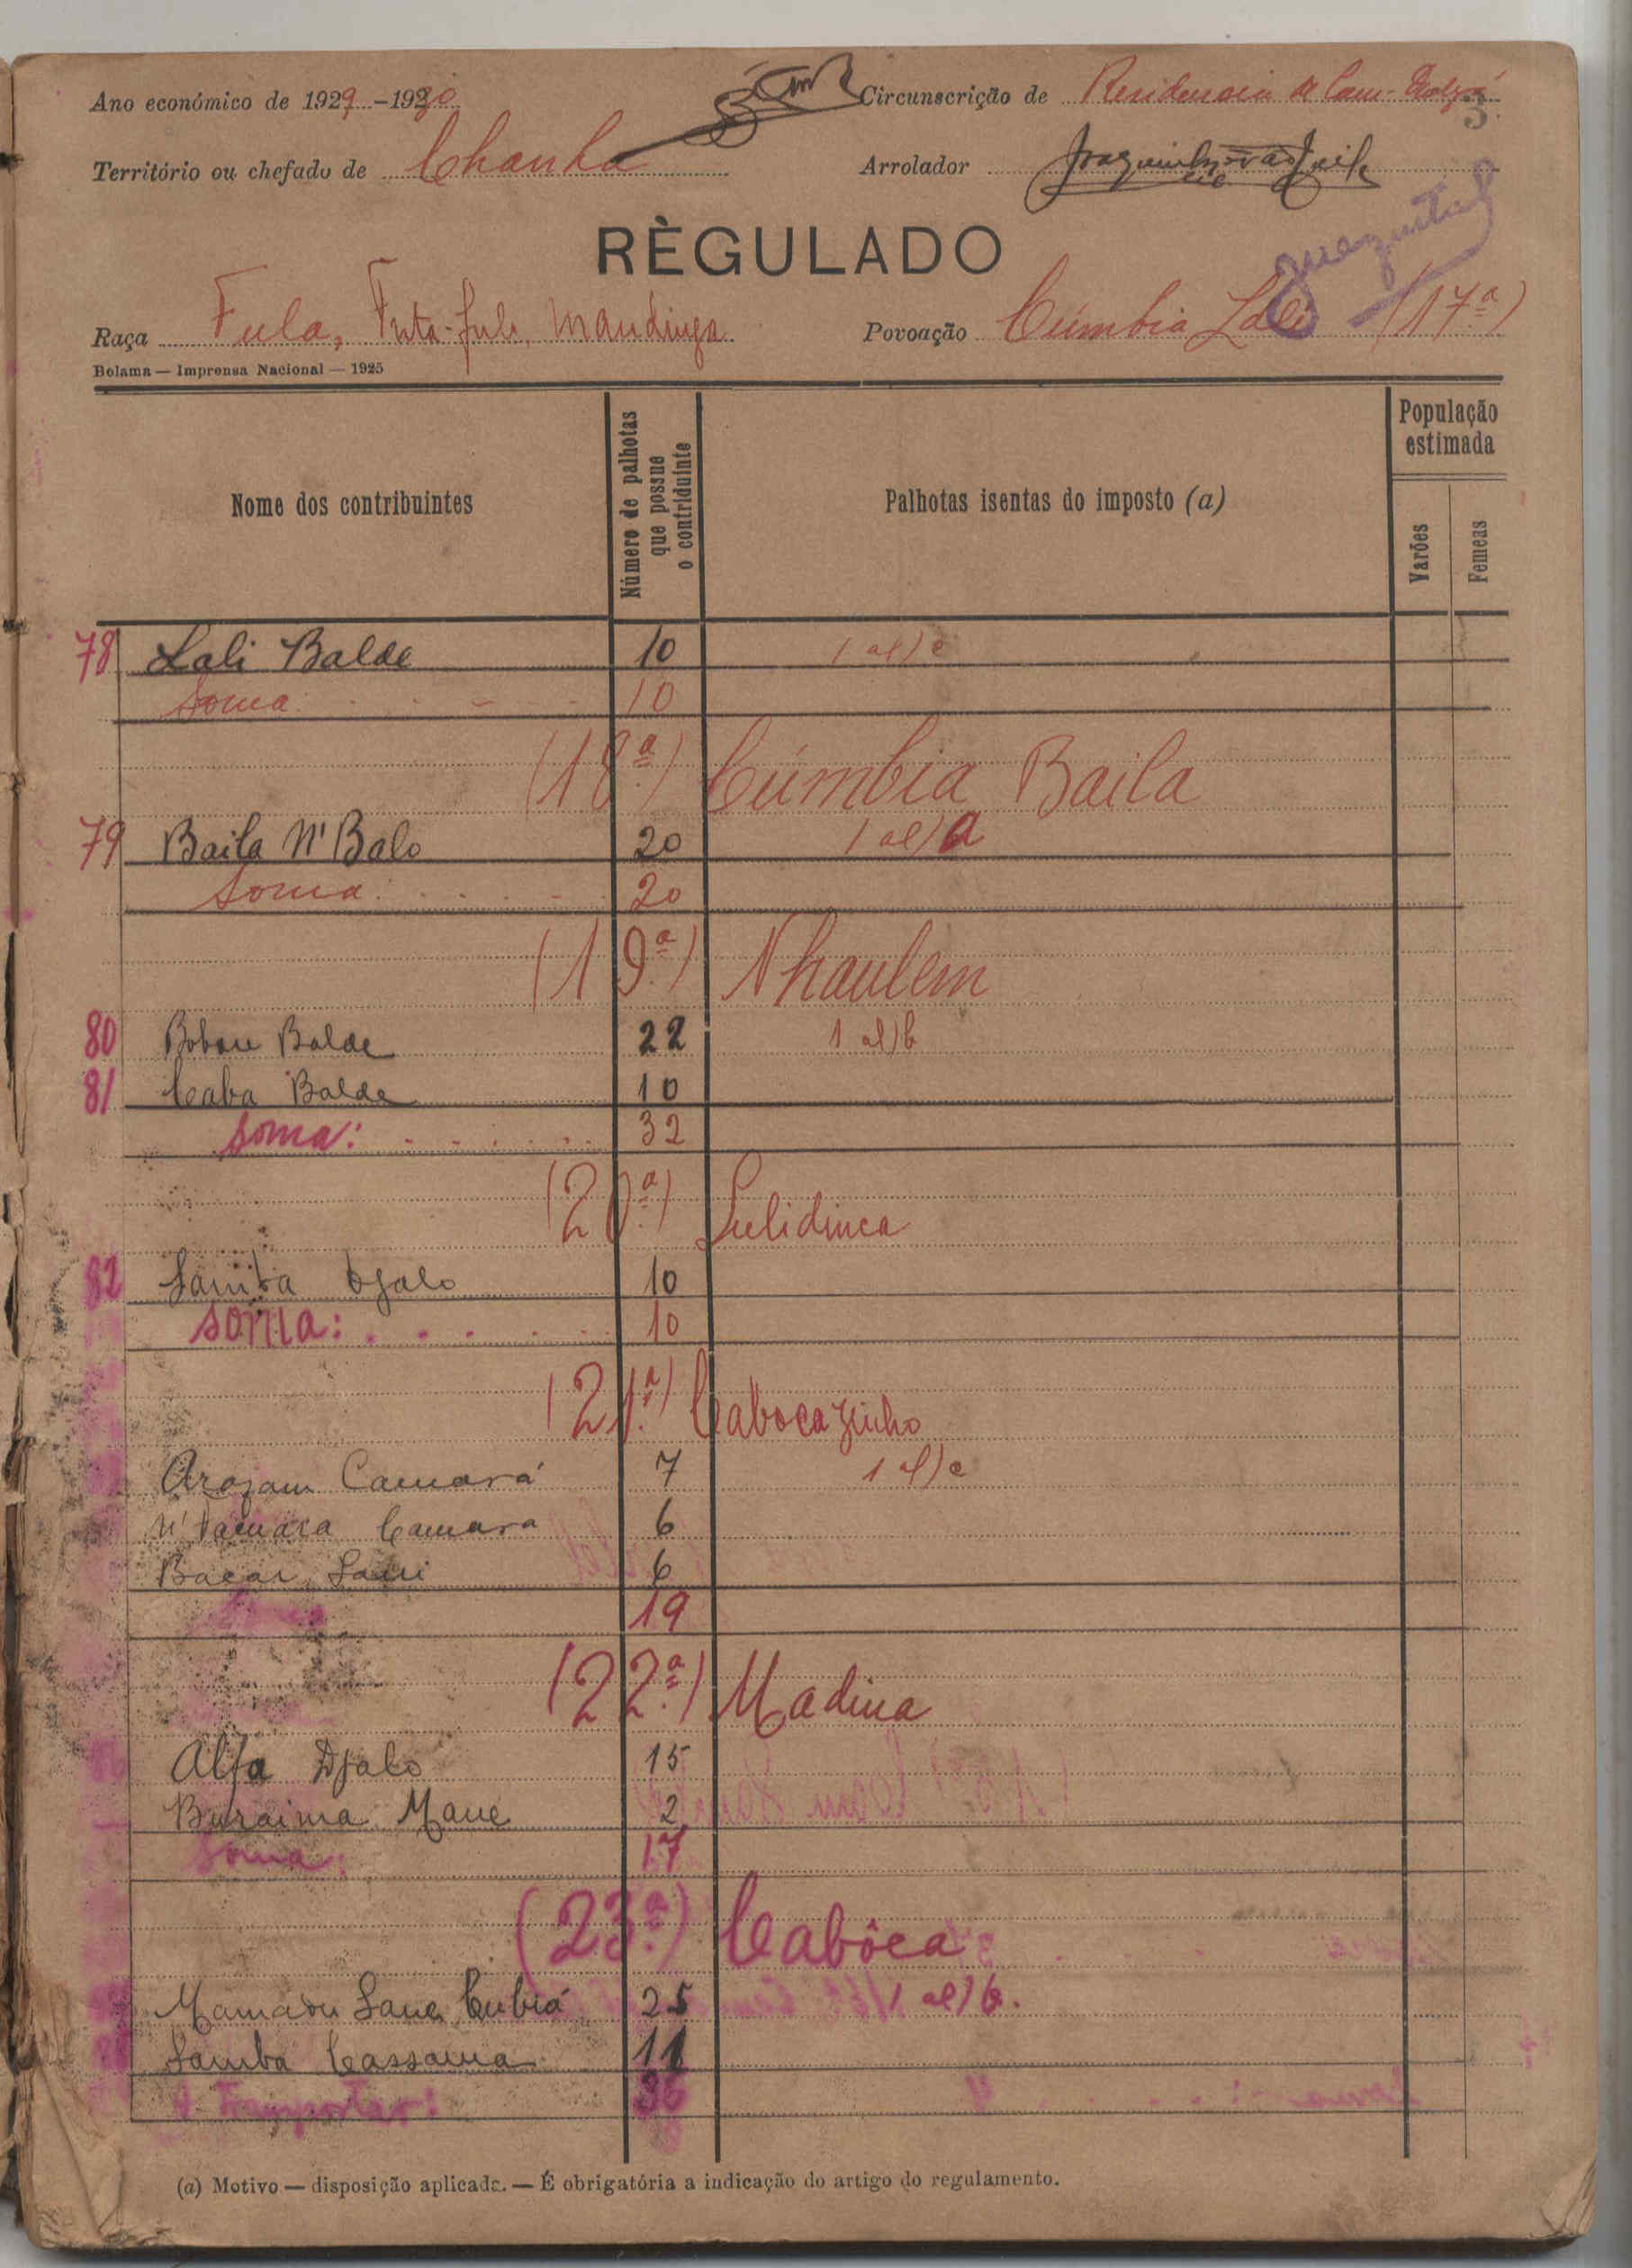 Ano económico de 1929-1930 Circunscrição de Residencia de
3.
Território ou chefado de Chanha Arrolador
RÈGULADO
Raça Fula, Futa-fula, Mandinga Povoação Cúmbia Lali (17ª)
Bolama — Imprensa Nacional — 1925
Nome dos contribuintes
Número de palhotas que possue o contriduinte
Palhotas isentas do imposto (a)
População estimada
Varões
Femeas
78 Lali Balde 10 1 al) c
Soma 10
(18ª) Cúmbia Baila
79 Baila N'Balo 20 1 al) a
Soma 20
(19ª) Nhaulem
80 Balde 22 1 al) b
81 Caba Balde 10
Soma: 32
(20ª) Sulidinca
82 Samba Djalo 10
Soma: 10
(21ª) Cabocazinho
Camará 7 1 al) c
Camara 6
Bacar 6
19
(22ª) Madina
Alfa Djalo 15
Buraima Mane 2
Soma: 17
(23ª) Cabôca
Mamadu Sane Cubiá 25 1 al) b.
Samba Cassama 11
A Transportar: 36
(a) Motivo — disposição aplicada. — É obrigatória a indicação do artigo do regulamento.